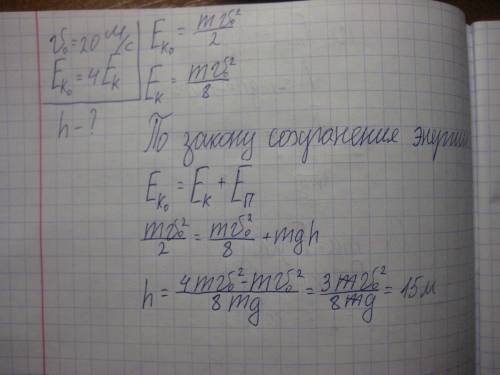 v₀=20 м/с
E_K₀=4E_K
h-?
E_K₀ = mv₀²/2
E_K = mv₀²/8
По закону сохранения энергии
E_K₀ = E_K + E_П
mv₀²/2 = mv₀²/8 + mgh
h = (4mv₀²-mv₀²)/8mg = 3mv₀²/8mg = 15м